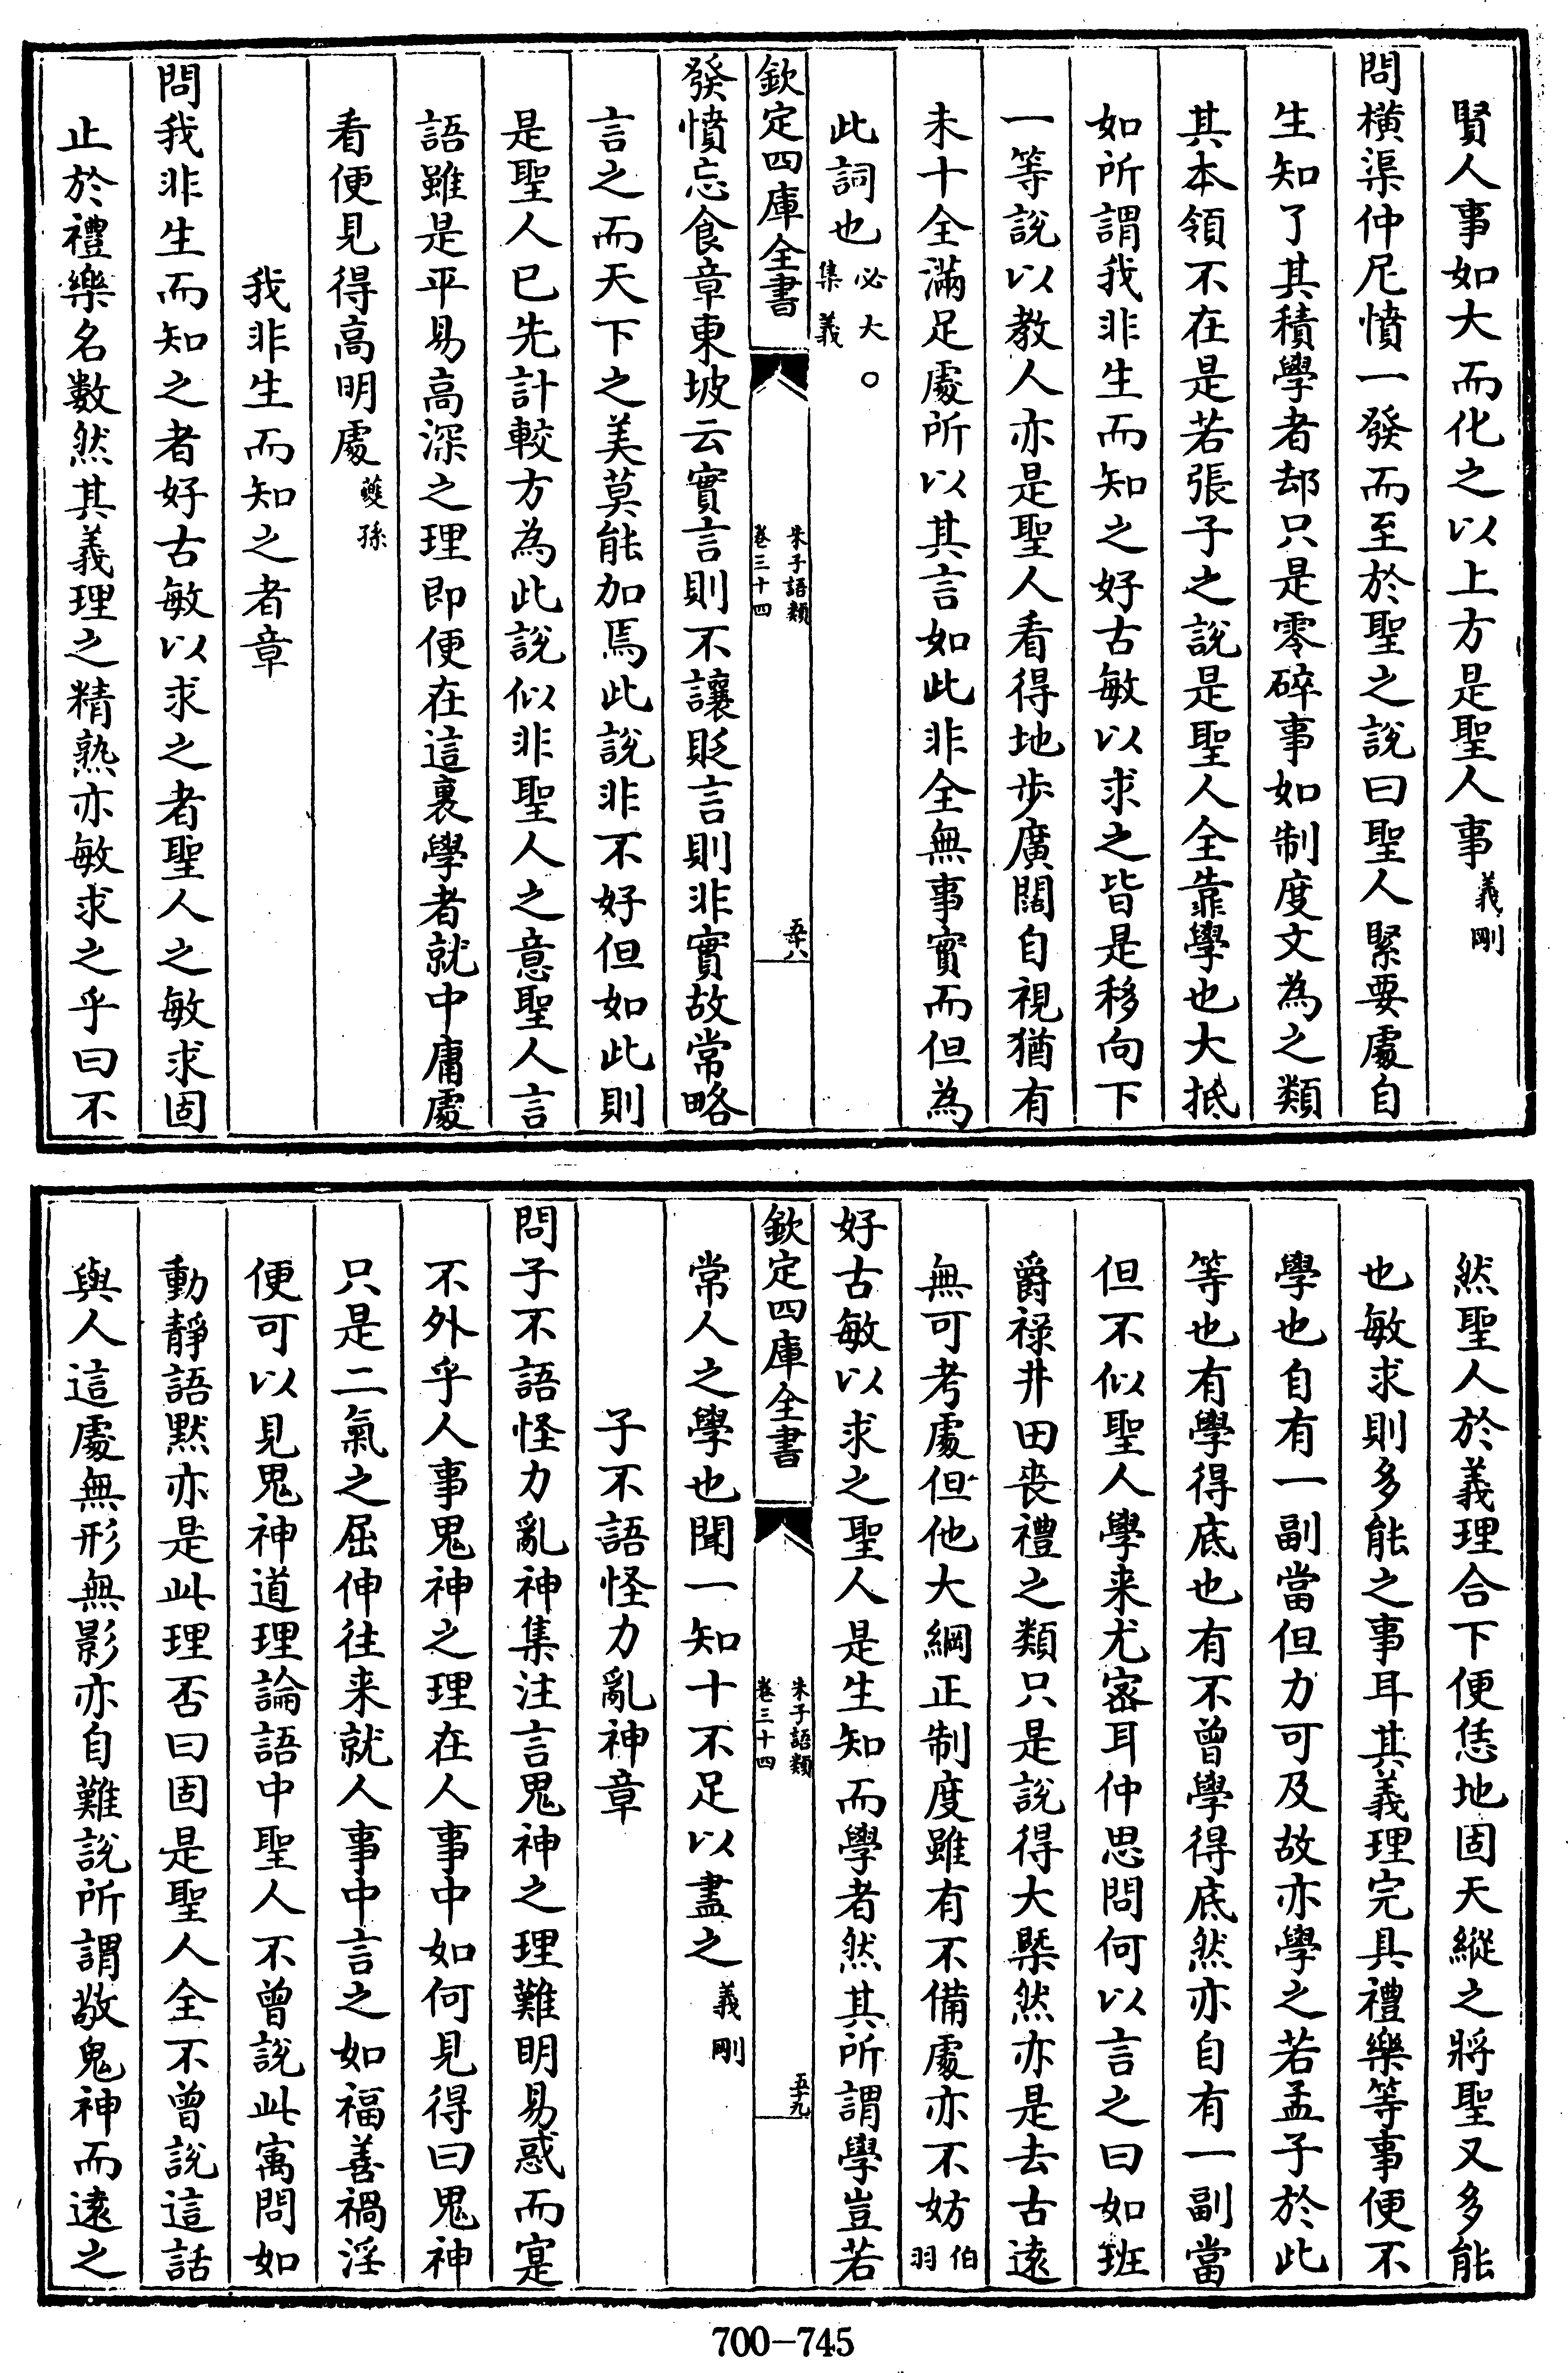 賢人事如大而化之以上方是聖人事義剛
問橫渠仲尼憤一發而至於聖之說曰聖人緊要處自
生知了其積學者却只是零碎事如制度文為之類
其本領不在是若張子之說是聖人全靠學也大抵
如所謂我非生而知之好古敏以求之皆是移向下
一等說以教人亦是聖人看得地步廣闊自視猶有
未十全滿足處所以其言如此非全無事實而但為
此詞也必大○集義
欽定四庫全書
朱子語類
卷三十四
五十八
發憤忘食章東坡云實言則不讓貶言則非實故常略
言之而天下之美莫能加焉此說非不好但如此則
是聖人已先計較方為此說似非聖人之意聖人言
語雖是平易高深之理即便在這裏學者就中庸處
看便見得高明處夔孫
我非生而知之者章
問我非生而知之者好古敏以求之者聖人之敏求固
止於禮樂名數然其義理之精熟亦敏求之乎曰不
然聖人於義理合下便恁地固天縱之將聖又多能
也敏求則多能之事耳其義理完具禮樂等事便不
學也自有一副當但力可及故亦學之若孟子於此
等也有學得底也有不曾學得底然亦自有一副當
但不似聖人學来尤密耳仲思問何以言之曰如班
爵祿井田喪禮之類只是說得大槩然亦是去古遠
無可考處但他大綱正制度雖有不備處亦不妨伯羽
好古敏以求之聖人是生知而學者然其所謂學豈若
欽定四庫全書
朱子語類
卷三十四
五十九
常人之學也聞一知十不足以盡之義剛
子不語怪力亂神章
問子不語怪力亂神集注言鬼神之理難明易惑而寔
不外乎人事鬼神之理在人事中如何見得曰鬼神
只是二氣之屈伸往来就人事中言之如福善禍淫
便可以見鬼神道理論語中聖人不曾說此寓問如
動靜語黙亦是此理否曰固是聖人全不曾說這話
與人這處無形無影亦自難說所謂敬鬼神而遠之
700-745